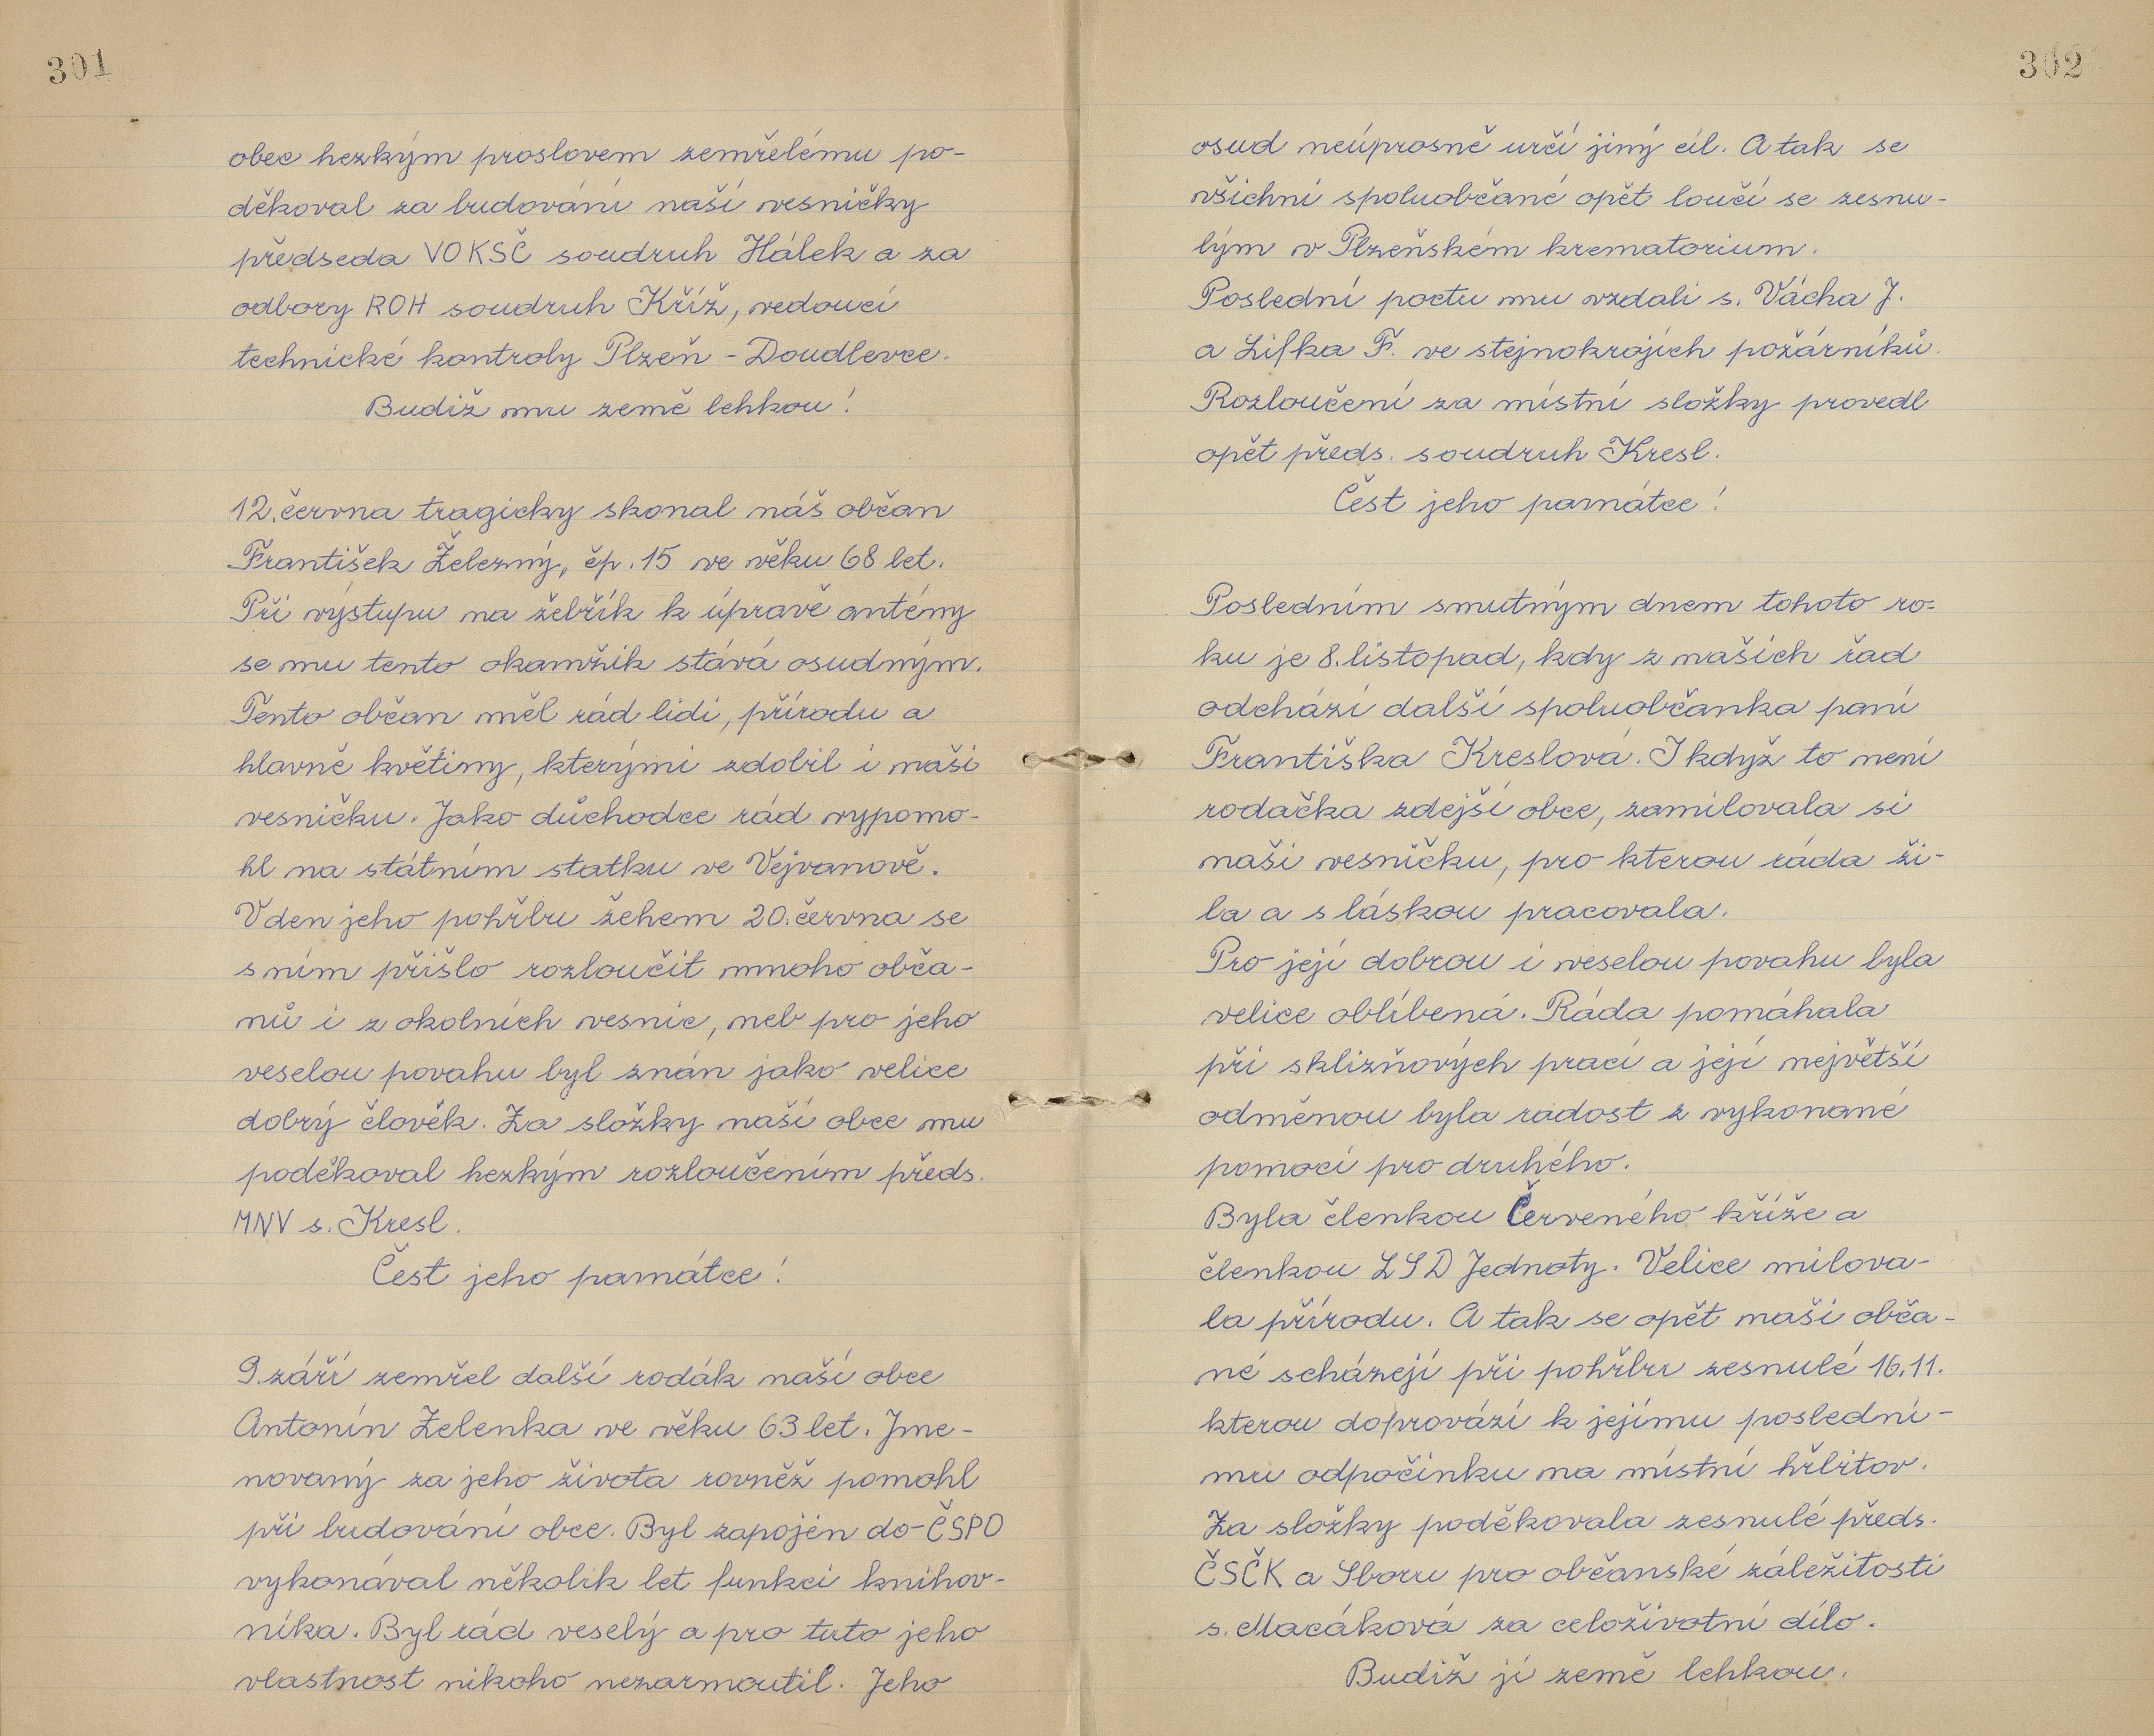 301
obec hezkým proslovem zemřelému po-
děkoval za budování naší vesničky
předseda VOKSČ soudruh Hálek a za
odbory ROH soudruh Kříž, vedoucí
technické kontroly Plzeň - Doudlevce.
Budiž mu země lehkou!
12. června tragicky skonal náš občan
František Železný, čp. 15 ve věku 68 let.
Při výstupu na žebřík k úpravě antény
se mu tento okamžik stává osudným.
Tento občan měl rád lidi, přírodu a
hlavně květiny, kterými zdobil i naši
vesničku. Jako důchodce rád vypomo-
hl na státním statku ve Vejvanově.
V den jeho pohřbu žehem 20. června se
s ním přišlo rozloučit mnoho obča-
nů i z okolních vesnic, neb pro jeho
veselou povahu byl znán jako velice
dobrý člověk. Za složky naší obce mu
poděkoval hezkým rozloučením předs.
MNV s. Kresl.
Čest jeho památce!
9. září zemřel další rodák naší obce
Antonín Zelenka ve věku 63 let. Jme-
novaný za jeho života rovněž pomohl
při budování obce. Byl zapojen do ČSPO
vykonával několik let funkci knihov-
níka. Byl rád veselý a pro tuto jeho
vlastnost nikoho nezarmoutil. Jeho
302
osud neúprosně určí jiný cíl. A tak se
všichni spoluobčané opět loučí se zesnu-
lým v Plzeňském krematorium.
Poslední poctu mu vzdali s. Vácha J.
a Lifka F. ve stejnokrojích požárníků.
Rozloučení za místní složky provedl
opět předs. soudruh Kresl.
Čest jeho památce!
Posledním smutným dnem tohoto ro-
ku je 8. listopad, kdy z našich řad
odchází další spoluobčanka paní
Františka Kreslová. I když to není
rodačka zdejší obce, zamilovala si
naši vesničku, pro kterou ráda ži-
la a s láskou pracovala.
Pro její dobrou i veselou povahu byla
velice oblíbená. Ráda pomáhala
při sklizňových prací a její největší
odměnou byla radost z vykonané
pomoci pro druhého.
Byla členkou Červeného kříže a
členkou LSD Jednoty. Velice milova-
la přírodu. A tak se opět naši obča-
né scházejí při pohřbu zesnulé 16.11.
kterou doprovází k jejímu poslední-
mu odpočinku na místní hřbitov.
Za složky poděkovala zesnulé předs.
ČSČK a Sboru pro občanské záležitosti
s. Macáková za celoživotní dílo.
Budiž jí země lehkou.